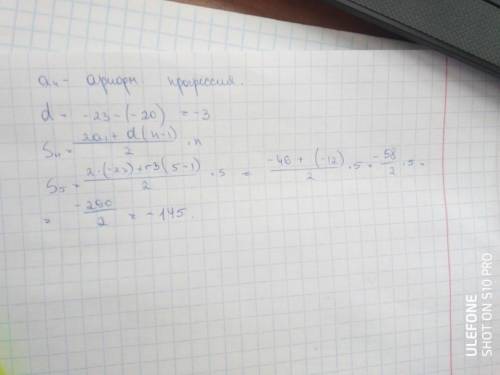 aₙ - арифм. прогрессия.
d = -23 - (-20) = -3
Sₙ = (2a₁ + d(n-1))/2 · n
S₅ = (2·(-23)+-3(5-1))/2 · 5 = (-46 + (-12))/2 · 5 = -58/2 · 5 =
= -290/2 = -145.
ULEFONE
SHOT ON S10 PRO